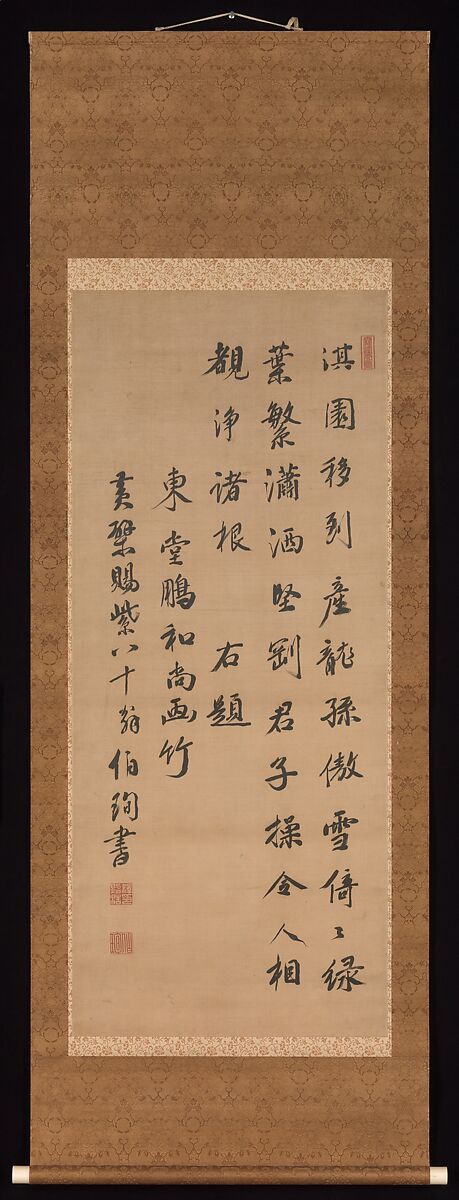 淇園移到產龍孫傲雪倚〻綠
葉繁瀟洒堅剛君子操令人相
覩浄諸根　右題
東堂鵬和尚画竹
黄檗賜紫八十翁伯珣書